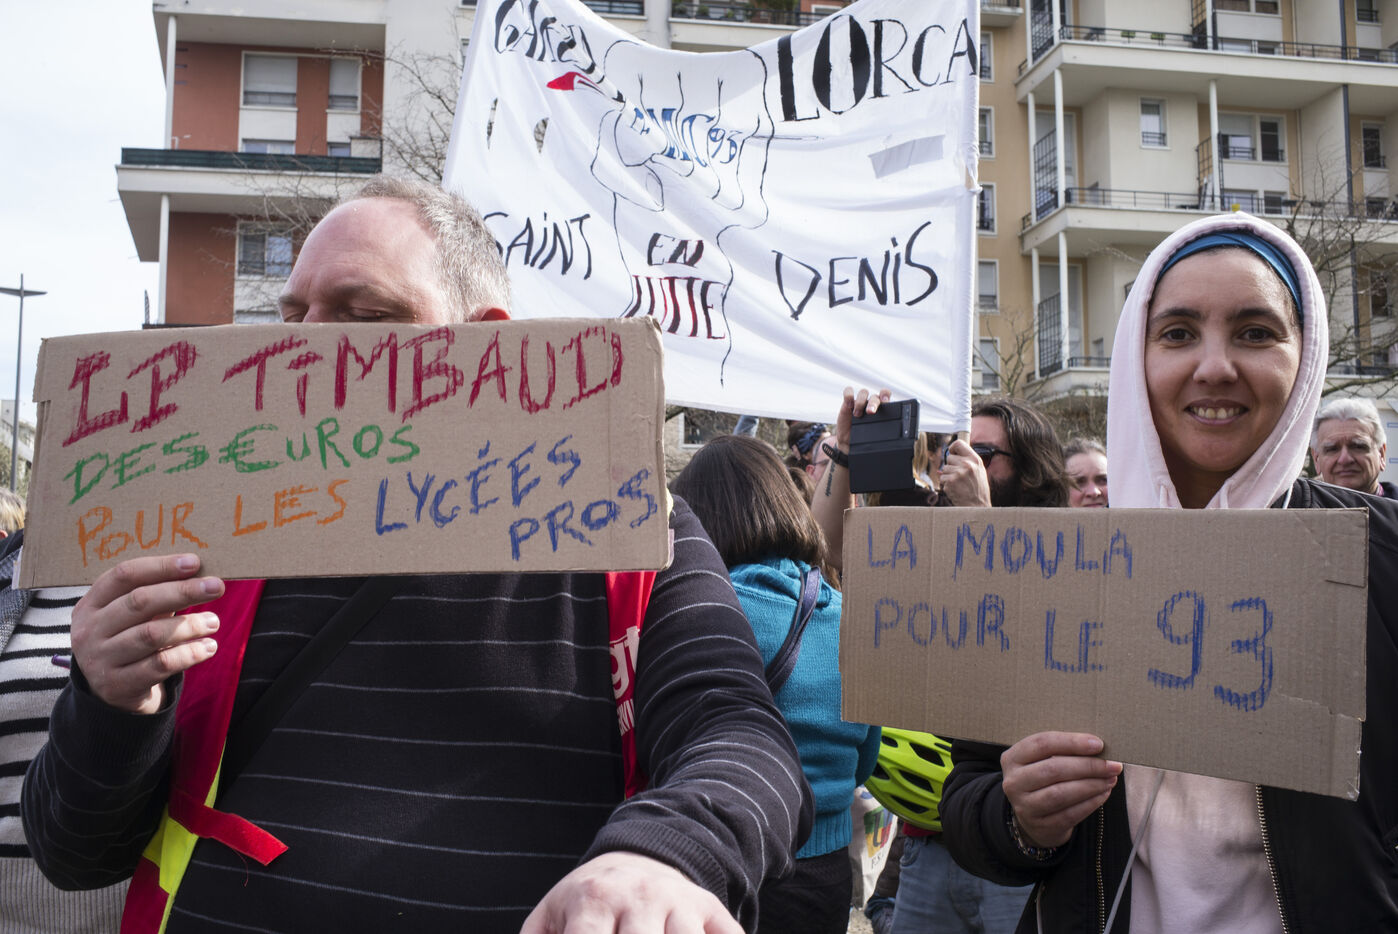 LORCA
SAINT
EN
DENIS
LUTTE
LP TIMBAUD
DES €UROS
POUR LES LYCÉES
PROS
LA MOULA
POUR LE 93